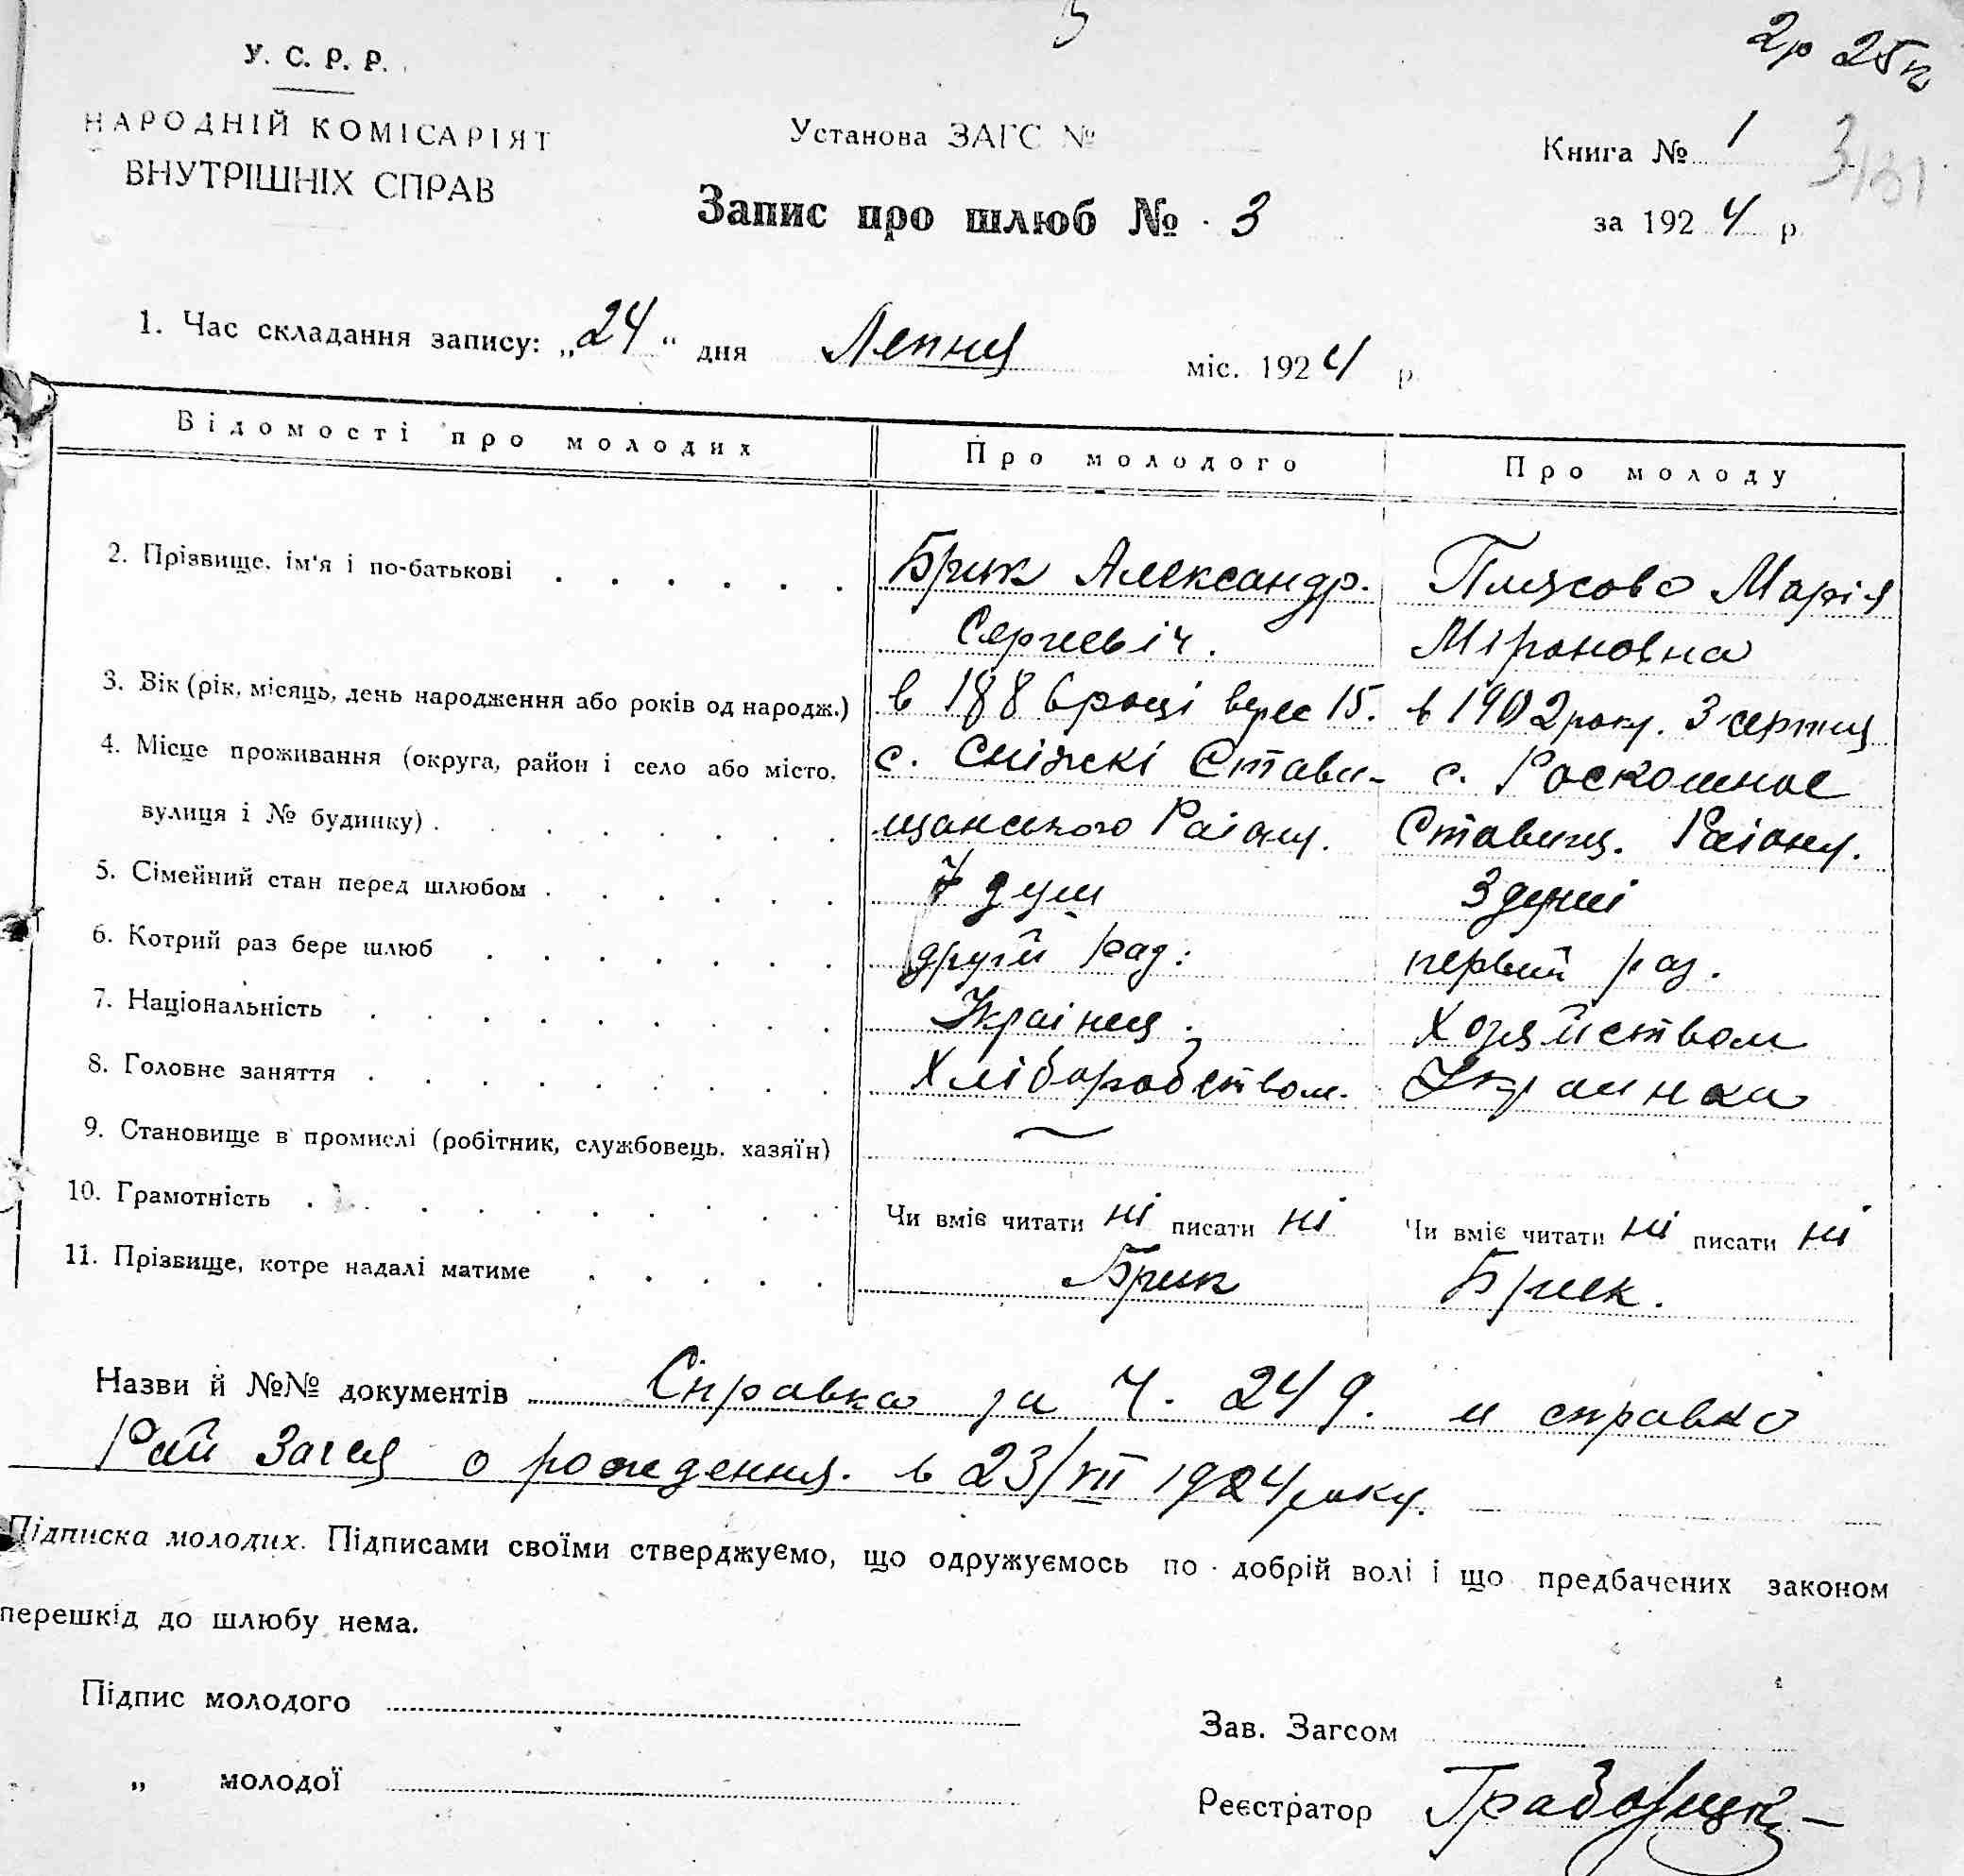 5
2р 25к
У. С. Р. Р.
НАРОДНІЙ КОМІСАРІЯТ
ВНУТРІШНІХ СПРАВ
Установа ЗАГС №
Книга № 1
Запис про шлюб № 3
за 1924 р.
1. Час складання запису: „24“ дня Лепця міс. 1924 р.
Відомості про молодих Про молодого Про молоду
2. Прізвище, ім'я і по-батькові Брик Александр. Марія
Сергиевіч. Міроновна
3. Вік (рік, місяць, день народження або років од народж.) в 1886 році верес 15. в 1902 року. 3 серпня
4. Місце проживання (округа, район і село або місто, с. Сніжкі Стави- с. Роскошное
вулиця і № будинку) щанського Раіону. Ставищ. Раіону.
5. Сімейний стан перед шлюбом 7 душ 3 душі
6. Котрий раз бере шлюб другй раз: первый раз.
7. Національність Украінец. Хозяйством
8. Головне заняття Хліборобством. Украинка
9. Становище в промислі (робітник, службовець, хазяїн) —
10. Грамотність Чи вміє читати ні писати ні Чи вміє читати ні писати ні
11. Прізвище, котре надалі матиме Брик Брик.
Назви й №№ документів Справка за Ч. 249. и справка
Рай Загса о рождения. в 23/VII 1924 року.
Підписка молодих. Підписами своїми стверджуємо, що одружуємось по добрій волі і що предбачених законом
перешкід до шлюбу нема.
Підпис молодого
Зав. Загсом
„ молодої
Реєстратор